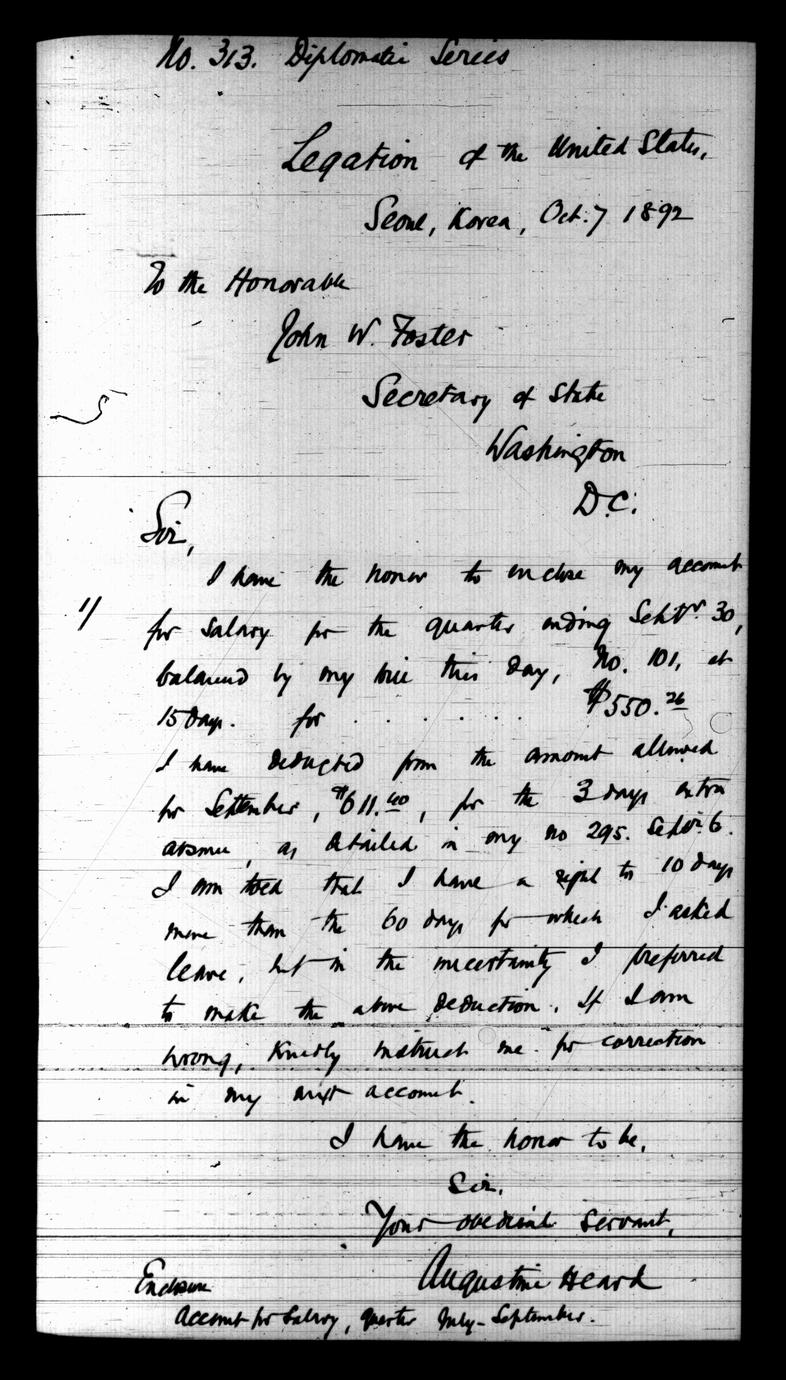 No. 313. Diplomatic Series
Legation of the United States,
Seoul, Korea, Oct. 7 1892
To the Honorable
John W. Foster
Secretary of State
Washington
D.C.
Sir,
I have the honor to enclose my account
1/ for salary for the quarter ending Septbr. 30,
balanced by my bill this day, No. 101, at
15 days. for . . . . . . $550.26
I have deducted from the amount allowed
for September, $611.40, for the 3 days extra
absence, as detailed in my no 295. Septbr. 6.
I am told that I have a right to 10 days
more than the 60 days for which I asked
leave, but in the uncertainty I preferred
to make the above deduction. If I am
wrong, kindly instruct me for correction
in my next account.
I have the honor to be,
Sir,
Your obedient servant,
Augustine Heard
Enclosure
Account for Salary, quarter July - September.